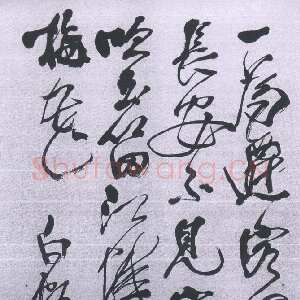 一為遷客
長安不見
吹玉笛江城
梅花 白
Shufawang.cn